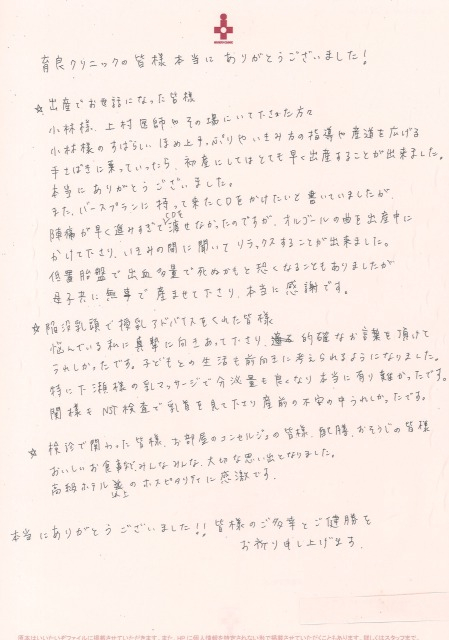 育良クリニックの皆様 本当に ありがとうございました!
☆出産でお世話になった皆様
小林様、上村医師やその場にいて下さった方々
小林様のすばらしい ほめ上手っぷりや いきみ方の指導や産道を広げる
手さばきに乗っていったら、初産にしてはとても早く出産することが出来ました。
本当にありがとうございました。
また、バースプランに 持って来たCDをかけたいと書いていましたが、
陣痛が早く進みすぎてCDを渡せなかったのですが、オルゴールの曲を出産中に
かけて下さり、いきみの間に聞いて リラックスすることが出来ました。
低置胎盤で出血多量で死ぬかもと恐くなることもありましたが
母子共に無事で産ませて下さり、本当に感謝です。
☆陥没乳頭で授乳アドバイスをくれた皆様
悩んでいる私に真摯に向きあって下さり、的確なお言葉を頂けて
うれしかったです。子どもとの生活も前向きに考えられるようになりました。
特に下瀬様の乳マッサージで分泌量も良くなり本当に有り難かったです。
関様も NST検査で乳首を見て下さり産前の不安の中うれしかったです。
☆ 検診で関わった皆様、お部屋のコンセルジュの皆様、配膳、おそうじの皆様
おいしいお食事など、みんなみんな、大切な思い出となりました。
高級ホテル以上のホスピタリティに感激です。
本当にありがとうございました!! 皆様のご多幸とご健勝を
お祈り申し上げます。
原本はいいたいぞファイルに掲載させていただきます。また、HPに個人情報を特定されない形で掲載させていただくこともあります。詳しくはスタッフまで。